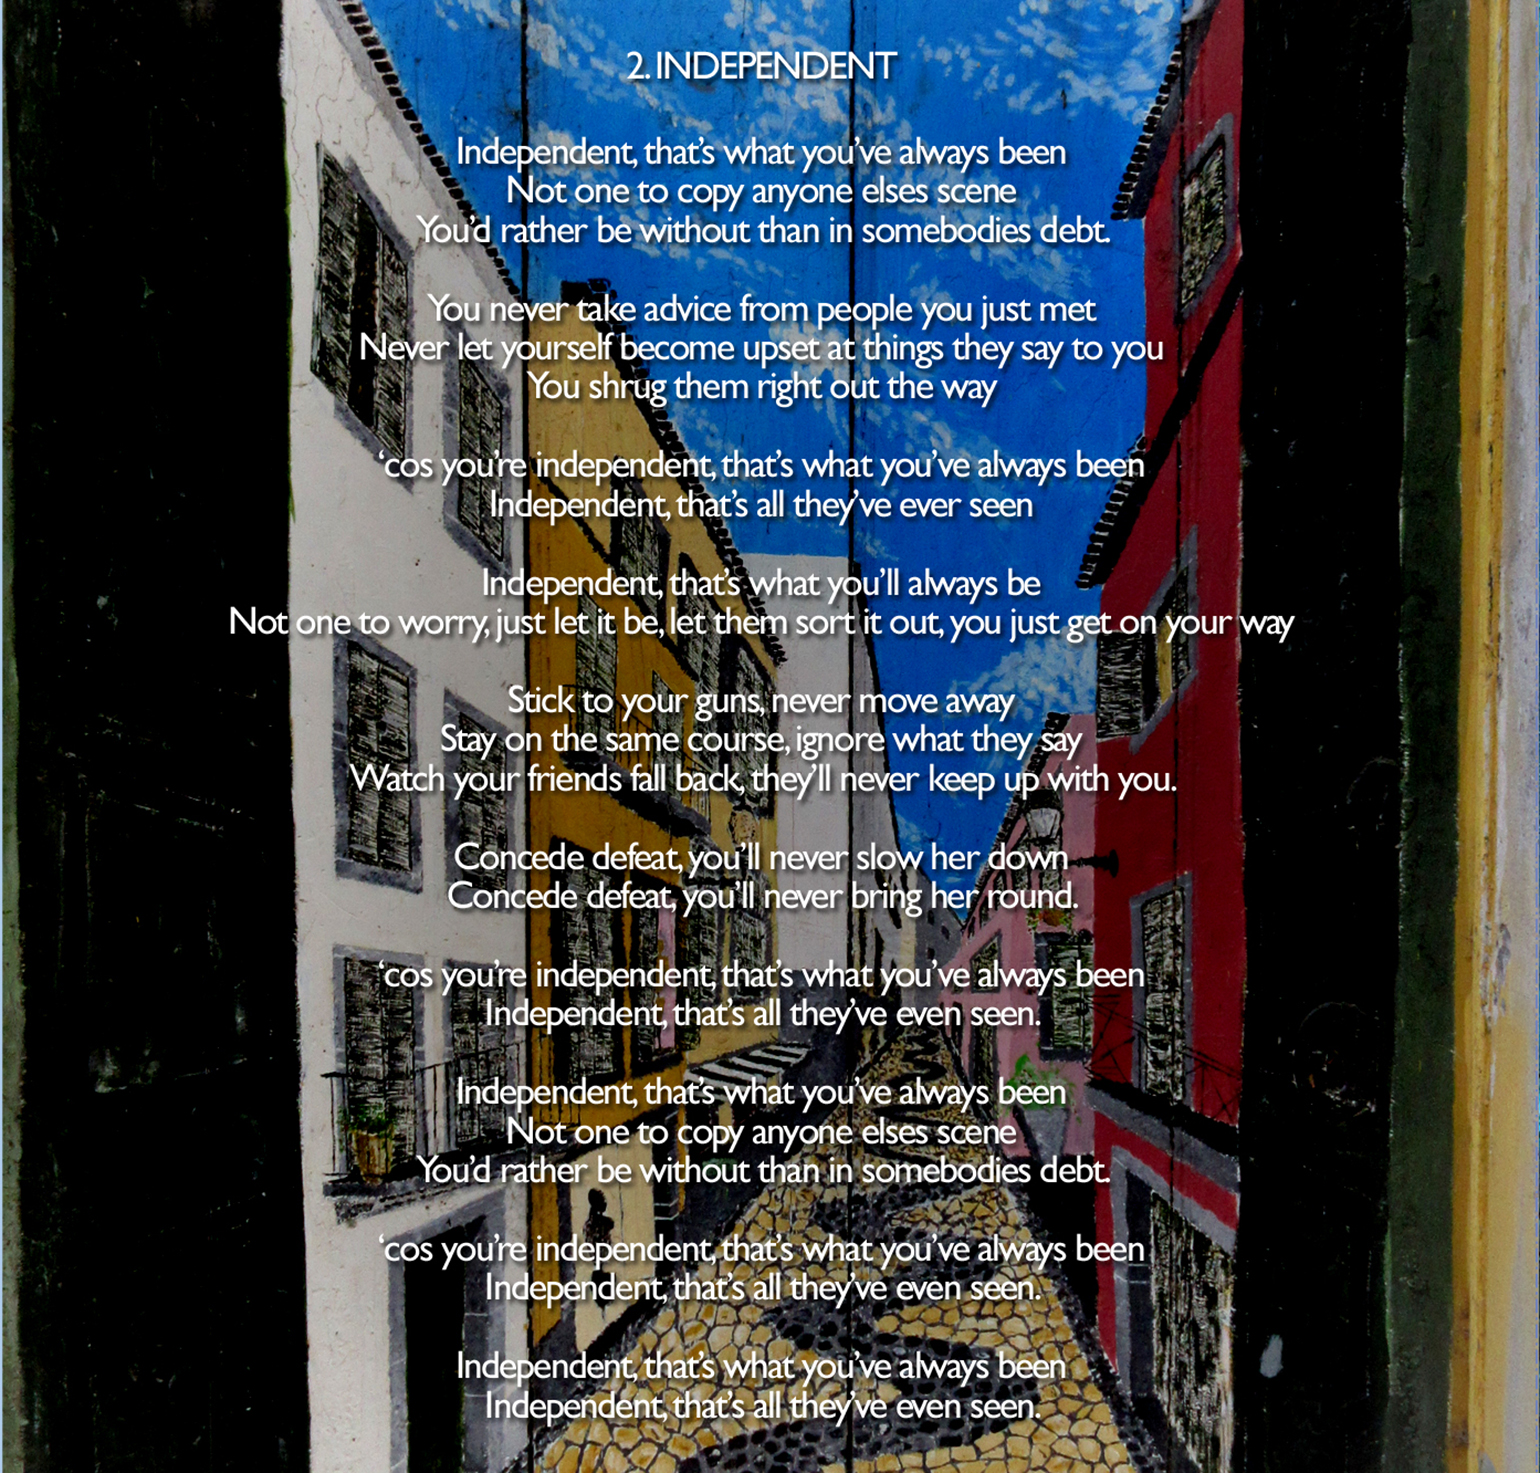 2. INDEPENDENT
Independent, that’s what you’ve always been
Not one to copy anyone elses scene
You’d rather be without than in somebodies debt.
You never take advice from people you just met
Never let yourself become upset at things they say to you
You shrug them right out the way
‘cos you’re independent, that’s what you’ve always been
Independent, that’s all they’ve ever seen
Independent, that’s what you’ll always be
Not one to worry, just let it be, let them sort it out, you just get on your way
Stick to your guns, never move away
Stay on the same course, ignore what they say
Watch your friends fall back, they’ll never keep up with you.
Concede defeat, you’ll never slow her down
Concede defeat, you’ll never bring her round.
‘cos you’re independent, that’s what you’ve always been
Independent, that’s all they’ve even seen.
Independent, that’s what you’ve always been
Not one to copy anyone elses scene
You’d rather be without than in somebodies debt.
‘cos you’re independent, that’s what you’ve always been
Independent, that’s all they’ve even seen.
Independent, that’s what you’ve always been
Independent, that’s all they’ve even seen.